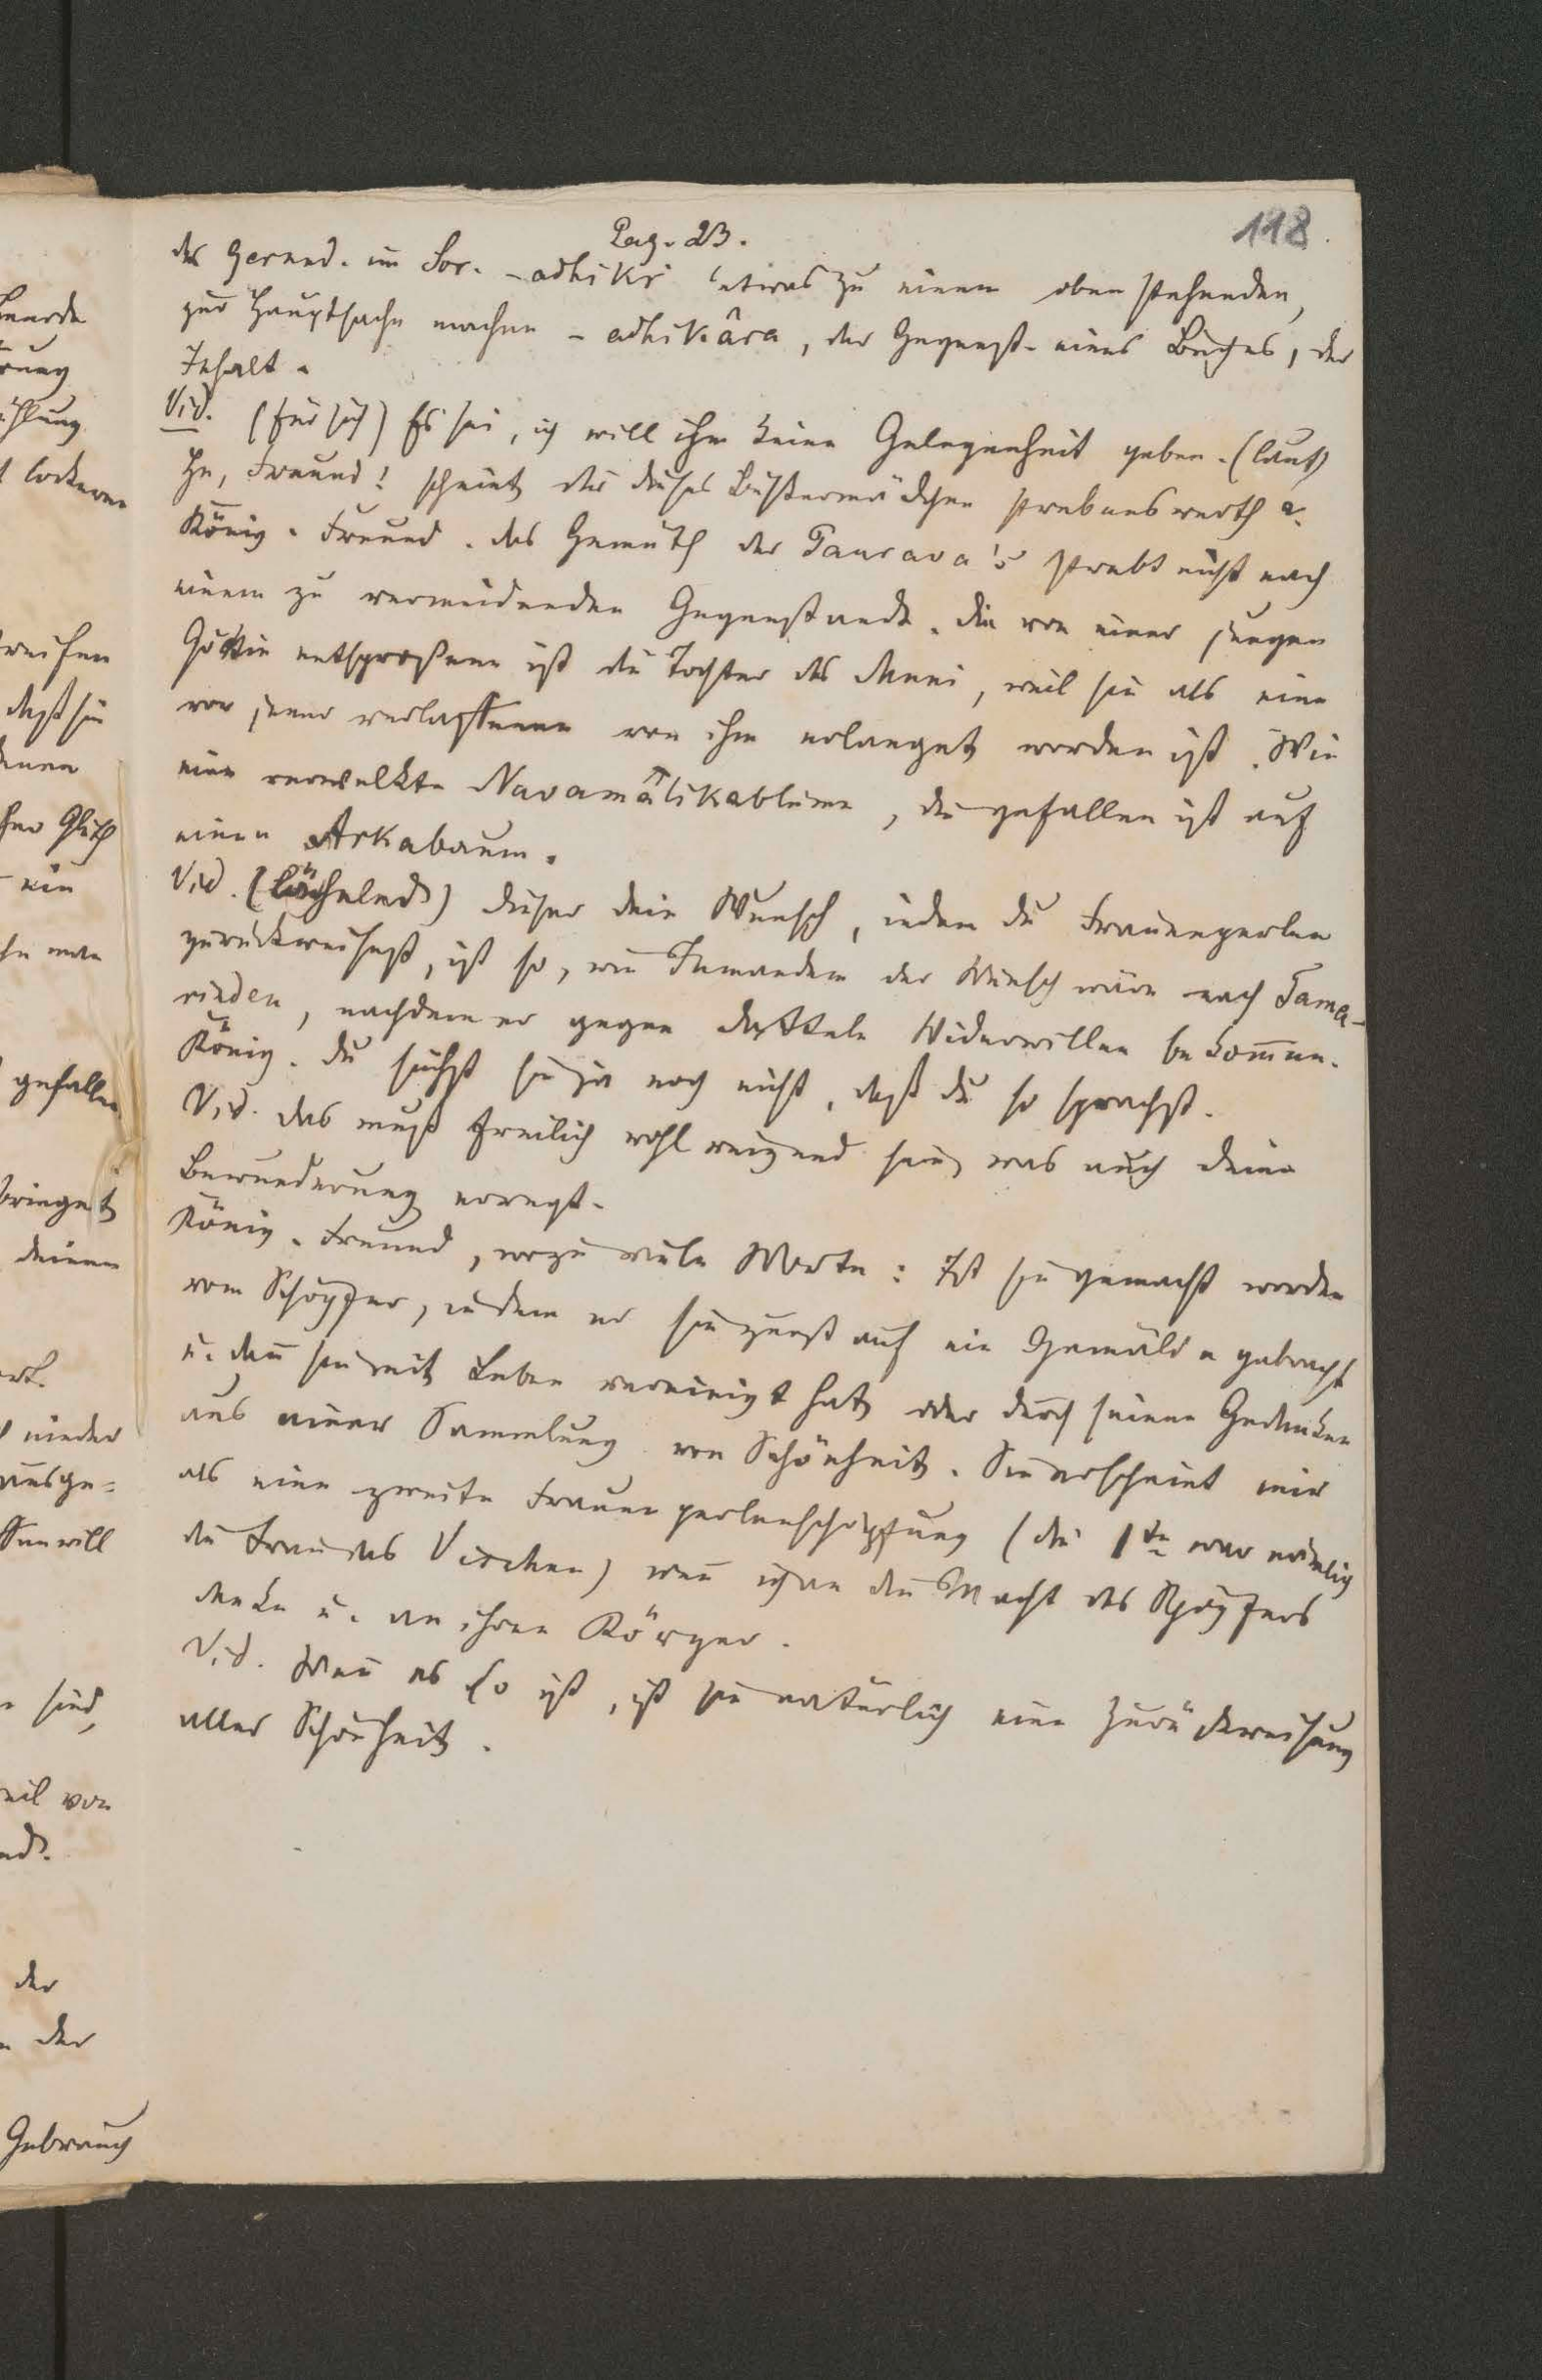 118.
Pag. 23.
des Gerund. im Sor. - adhikṛ etwas zu einem oben stehenden,
zur Hauptsache machen - adhikâra, der Gegenst. eines Buches, der
Inhalt.
Vid. (für sich) Es sei, ich will ihm keine Gelegenheit geben. (laut)
He, Freund! scheint dir dieses Büßermädchen strebenswerth?
König. Freund. das Gemüth der Paurava's strebt nicht nach
einem zu vermeidenden Gegenstande. die von einer jungen
Göttin entsproßene ist die Tochter des Muni, weil sie als eine
von jener verlassene von ihm erlanget worden ist. Wie
eine verwelkte Navamâlikablume, die gefallen ist auf
einen Arkabaum.
Vid. (lächelnd) dieser dein Wunsch, indem du Frauenperlen
zurückweisest, ist so, wie Jemandem der Wunsch wäre nach Tama-
rinden, nachdem er gegen Datteln Widerwillen bekommen.
König. du siehst sie ja noch nicht, daß du so sprachst.
Vid. das muß freilich wohl reizend sein, was auch deine
Bewunderung erregt.
König. Freund, wozu viele Worte: Ist sie gemacht worden
vom Schöpfer, indem er sie zuerst auf ein Gemälde gebracht
u. dann sie mit Leben vereinigt hat, oder durch seinen Gedanken
aus einer Sammlung von Schönheit. Sie erscheint mir
als eine zweite Frauenperlenschöpfung (die 1te war nämlich
die Frau des Vischnu) wenn ich an die Macht des Schöpfers
denke u. an ihren Körper.
Vid. Wenn es so ist, ist sie natürlich eine Zurückweisung
aller Schönheit.
lockeren
daß sie
Gluth
ein
gefallen
bringet
deinen
nieder
ausge=
will
sind,
weil von
der
der
Gebrauch